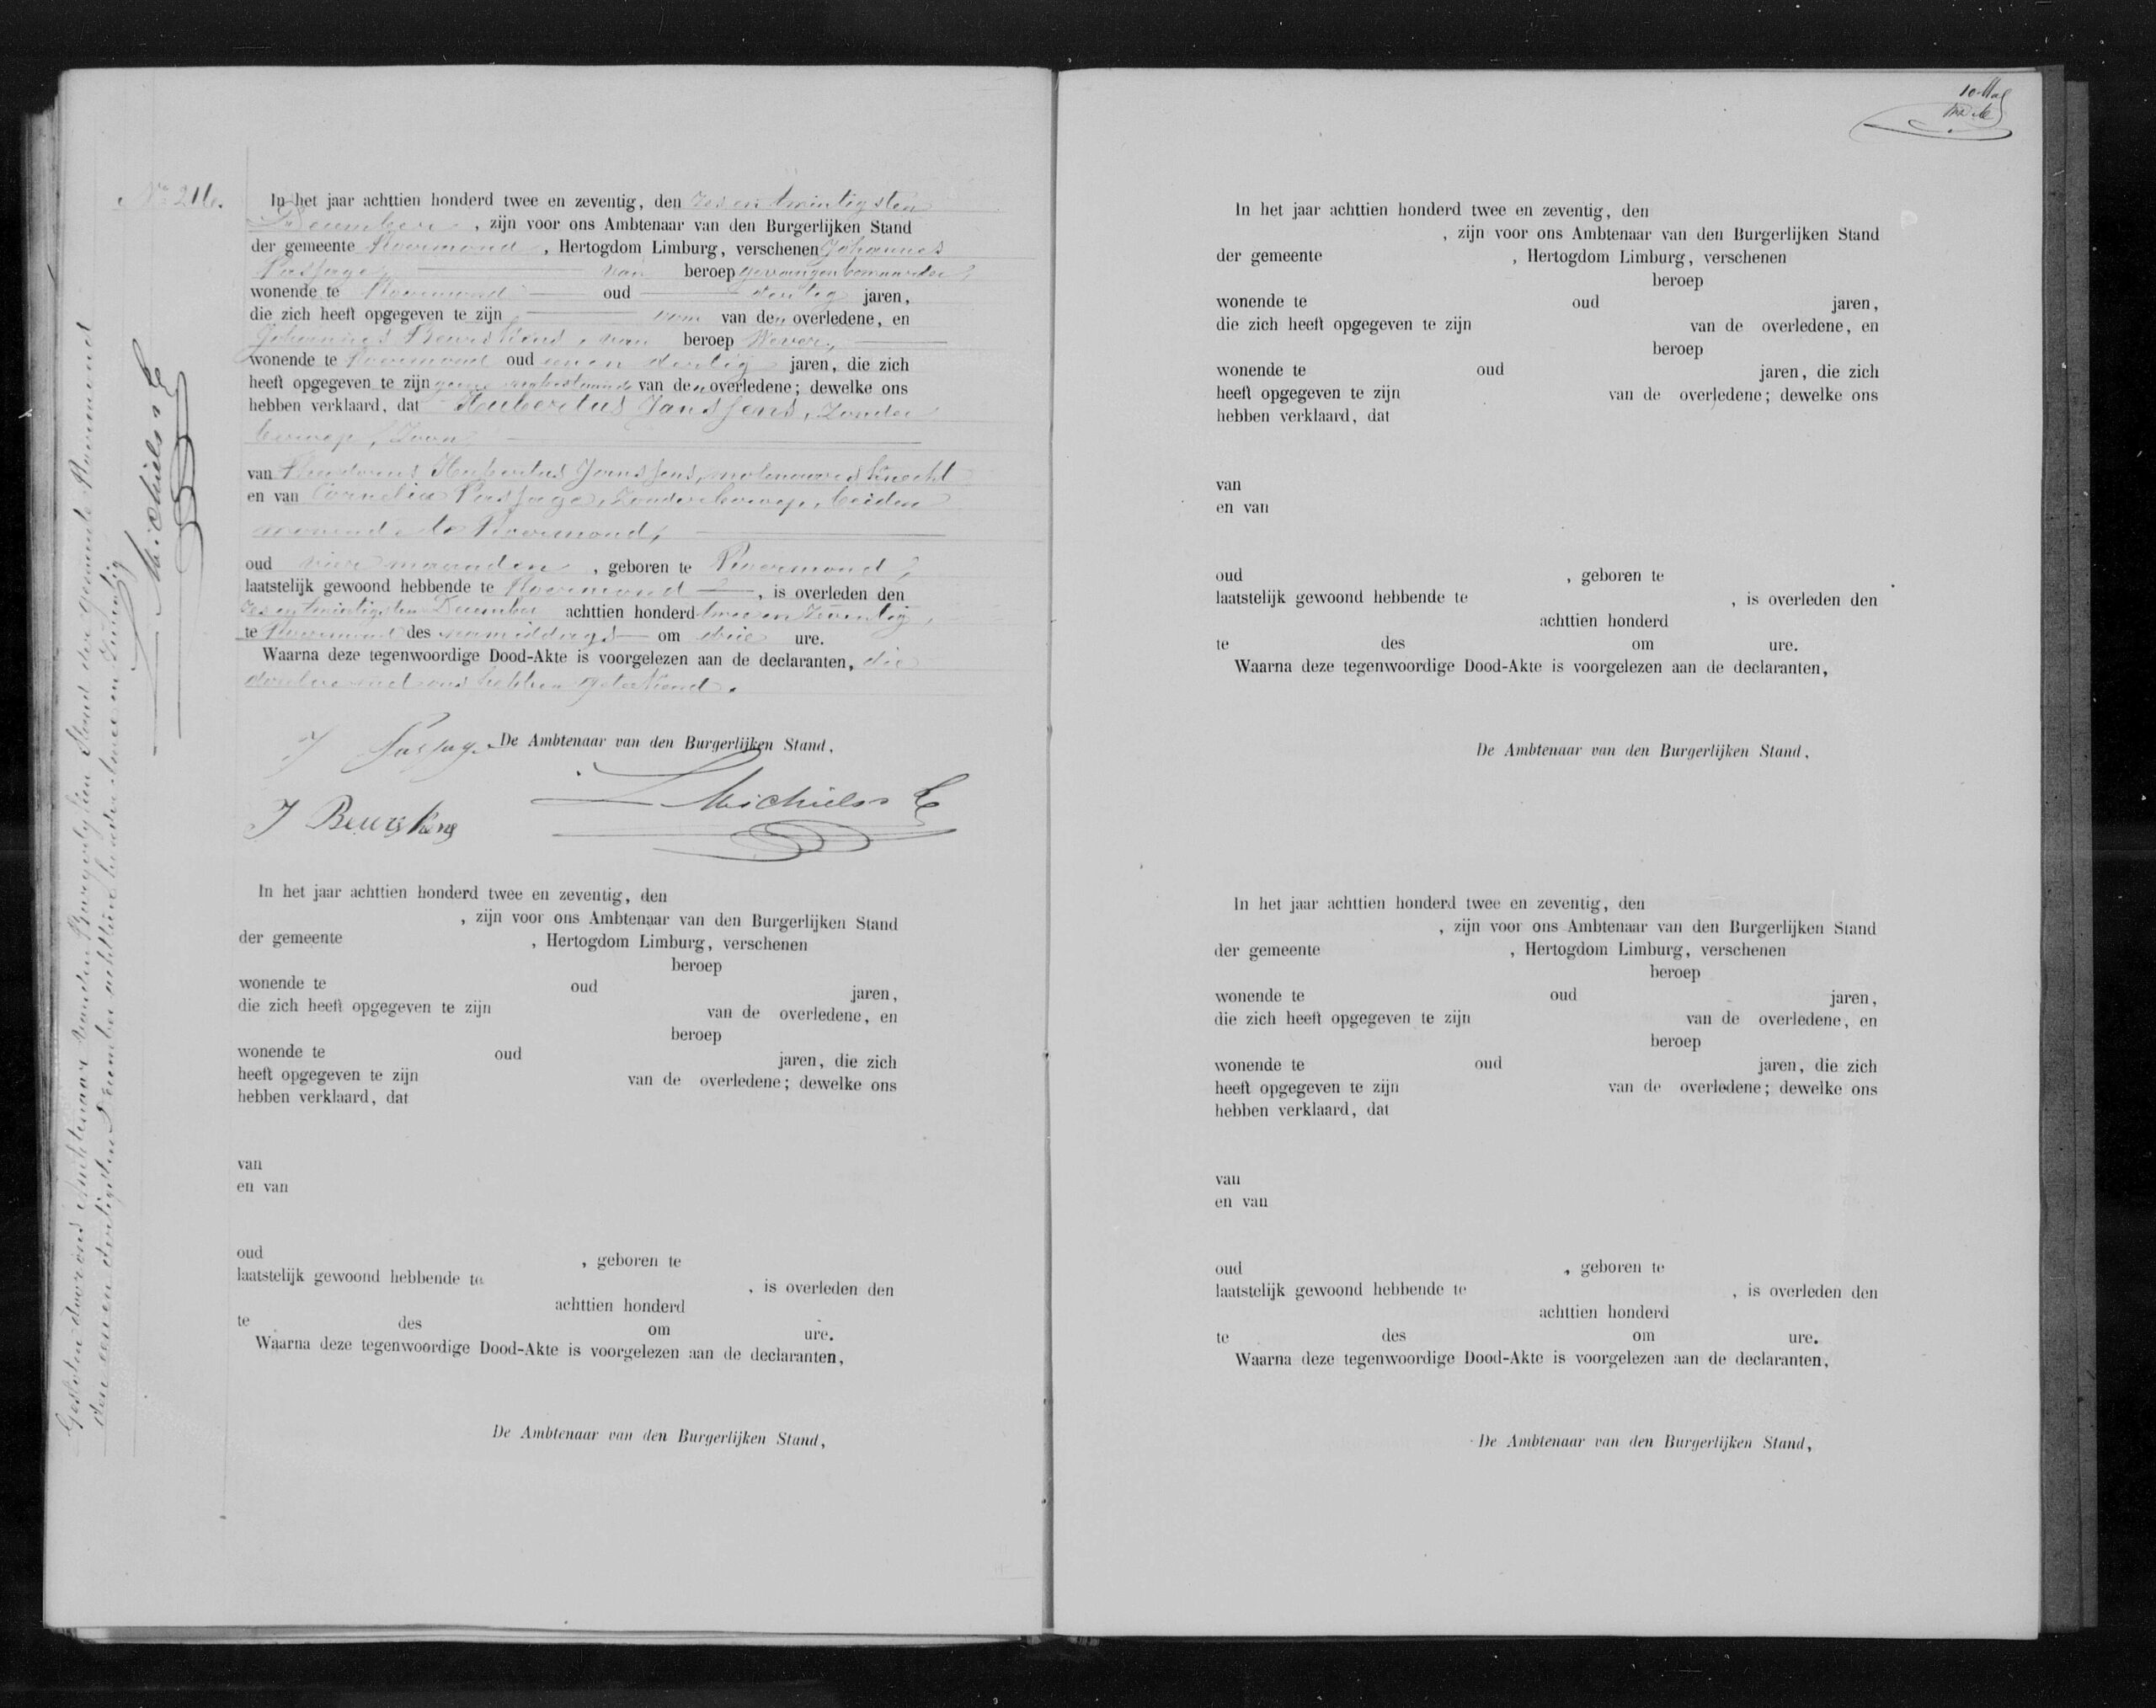 No 216.
In het jaar achttien honderd twee en zeventig, den zes en twintigsten
December, zijn voor ons Ambtenaar van den Burgerlijken Stand
der gemeente Roermond, Hertogdom Limburg, verschenen Johannes
Passage van beroep gevangenbewaarder,
wonende te Roermond oud dertig jaren,
die zich heeft opgegeven te zijn oom van den overledene, en
Johannes Beurskens, van beroep Wever,
wonende te Roermond oud eenen dertig jaren, die zich
heeft opgegeven te zijn geene van den overledene; dewelke ons
hebben verklaard, dat Hubertus Janssens, zonder
beroep, Zoon
van Hubertus Janssens, molenaarsknecht
en van Cornelia Passage, zonder beroep, beiden
wonende te Roermond,
oud vier maanden, geboren te Roermond,
laatstelijk gewoond hebbende te Roermond, is overleden den
zes en twintigsten December achttien honderd twee en zeventig,
te Roermond des namiddags om drie ure.
Waarna deze tegenwoordige Dood-Akte is voorgelezen aan de declaranten, die
dezelve met ons hebben geteekend.
J Passage De Ambtenaar van den Burgerlijken Stand,
Michiels
J Beurskens
In het jaar achttien honderd twee en zeventig, den
, zijn voor ons Ambtenaar van den Burgerlijken Stand
der gemeente , Hertogdom Limburg, verschenen
beroep
wonende te oud jaren,
die zich heeft opgegeven te zijn van de overledene, en
beroep
wonende te oud jaren, die zich
heeft opgegeven te zijn van de overledene; dewelke ons
hebben verklaard, dat
van
en van
oud , geboren te
laatstelijk gewoond hebbende te , is overleden den
achttien honderd
te des om ure.
Waarna deze tegenwoordige Dood-Akte is voorgelezen aan de declaranten,
De Ambtenaar van den Burgerlijken Stand,
Gesloten door ons Ambtenaar van den Burgerlijken Stand der gemeente Roermond
den eenen dertigsten December achttien honderd twee en zeventig
Michiels
In het jaar achttien honderd twee en zeventig, den
, zijn voor ons Ambtenaar van den Burgerlijken Stand
der gemeente , Hertogdom Limburg, verschenen
beroep
wonende te oud jaren,
die zich heeft opgegeven te zijn van de overledene, en
beroep
wonende te oud jaren, die zich
heeft opgegeven te zijn van de overledene; dewelke ons
hebben verklaard, dat
van
en van
oud , geboren te
laatstelijk gewoond hebbende te , is overleden den
achttien honderd
te des om ure.
Waarna deze tegenwoordige Dood-Akte is voorgelezen aan de declaranten,
De Ambtenaar van den Burgerlijken Stand,
In het jaar achttien honderd twee en zeventig, den
, zijn voor ons Ambtenaar van den Burgerlijken Stand
der gemeente , Hertogdom Limburg, verschenen
beroep
wonende te oud jaren,
die zich heeft opgegeven te zijn van de overledene, en
beroep
wonende te oud jaren, die zich
heeft opgegeven te zijn van de overledene; dewelke ons
hebben verklaard, dat
van
en van
oud , geboren te
laatstelijk gewoond hebbende te , is overleden den
achttien honderd
te des om ure.
Waarna deze tegenwoordige Dood-Akte is voorgelezen aan de declaranten,
De Ambtenaar van den Burgerlijken Stand,